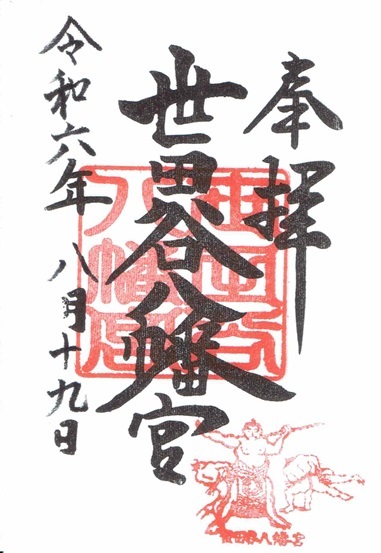 奉拝
世田谷八幡宮
令和六年八月十九日
世田谷八幡宮
世田谷八幡宮